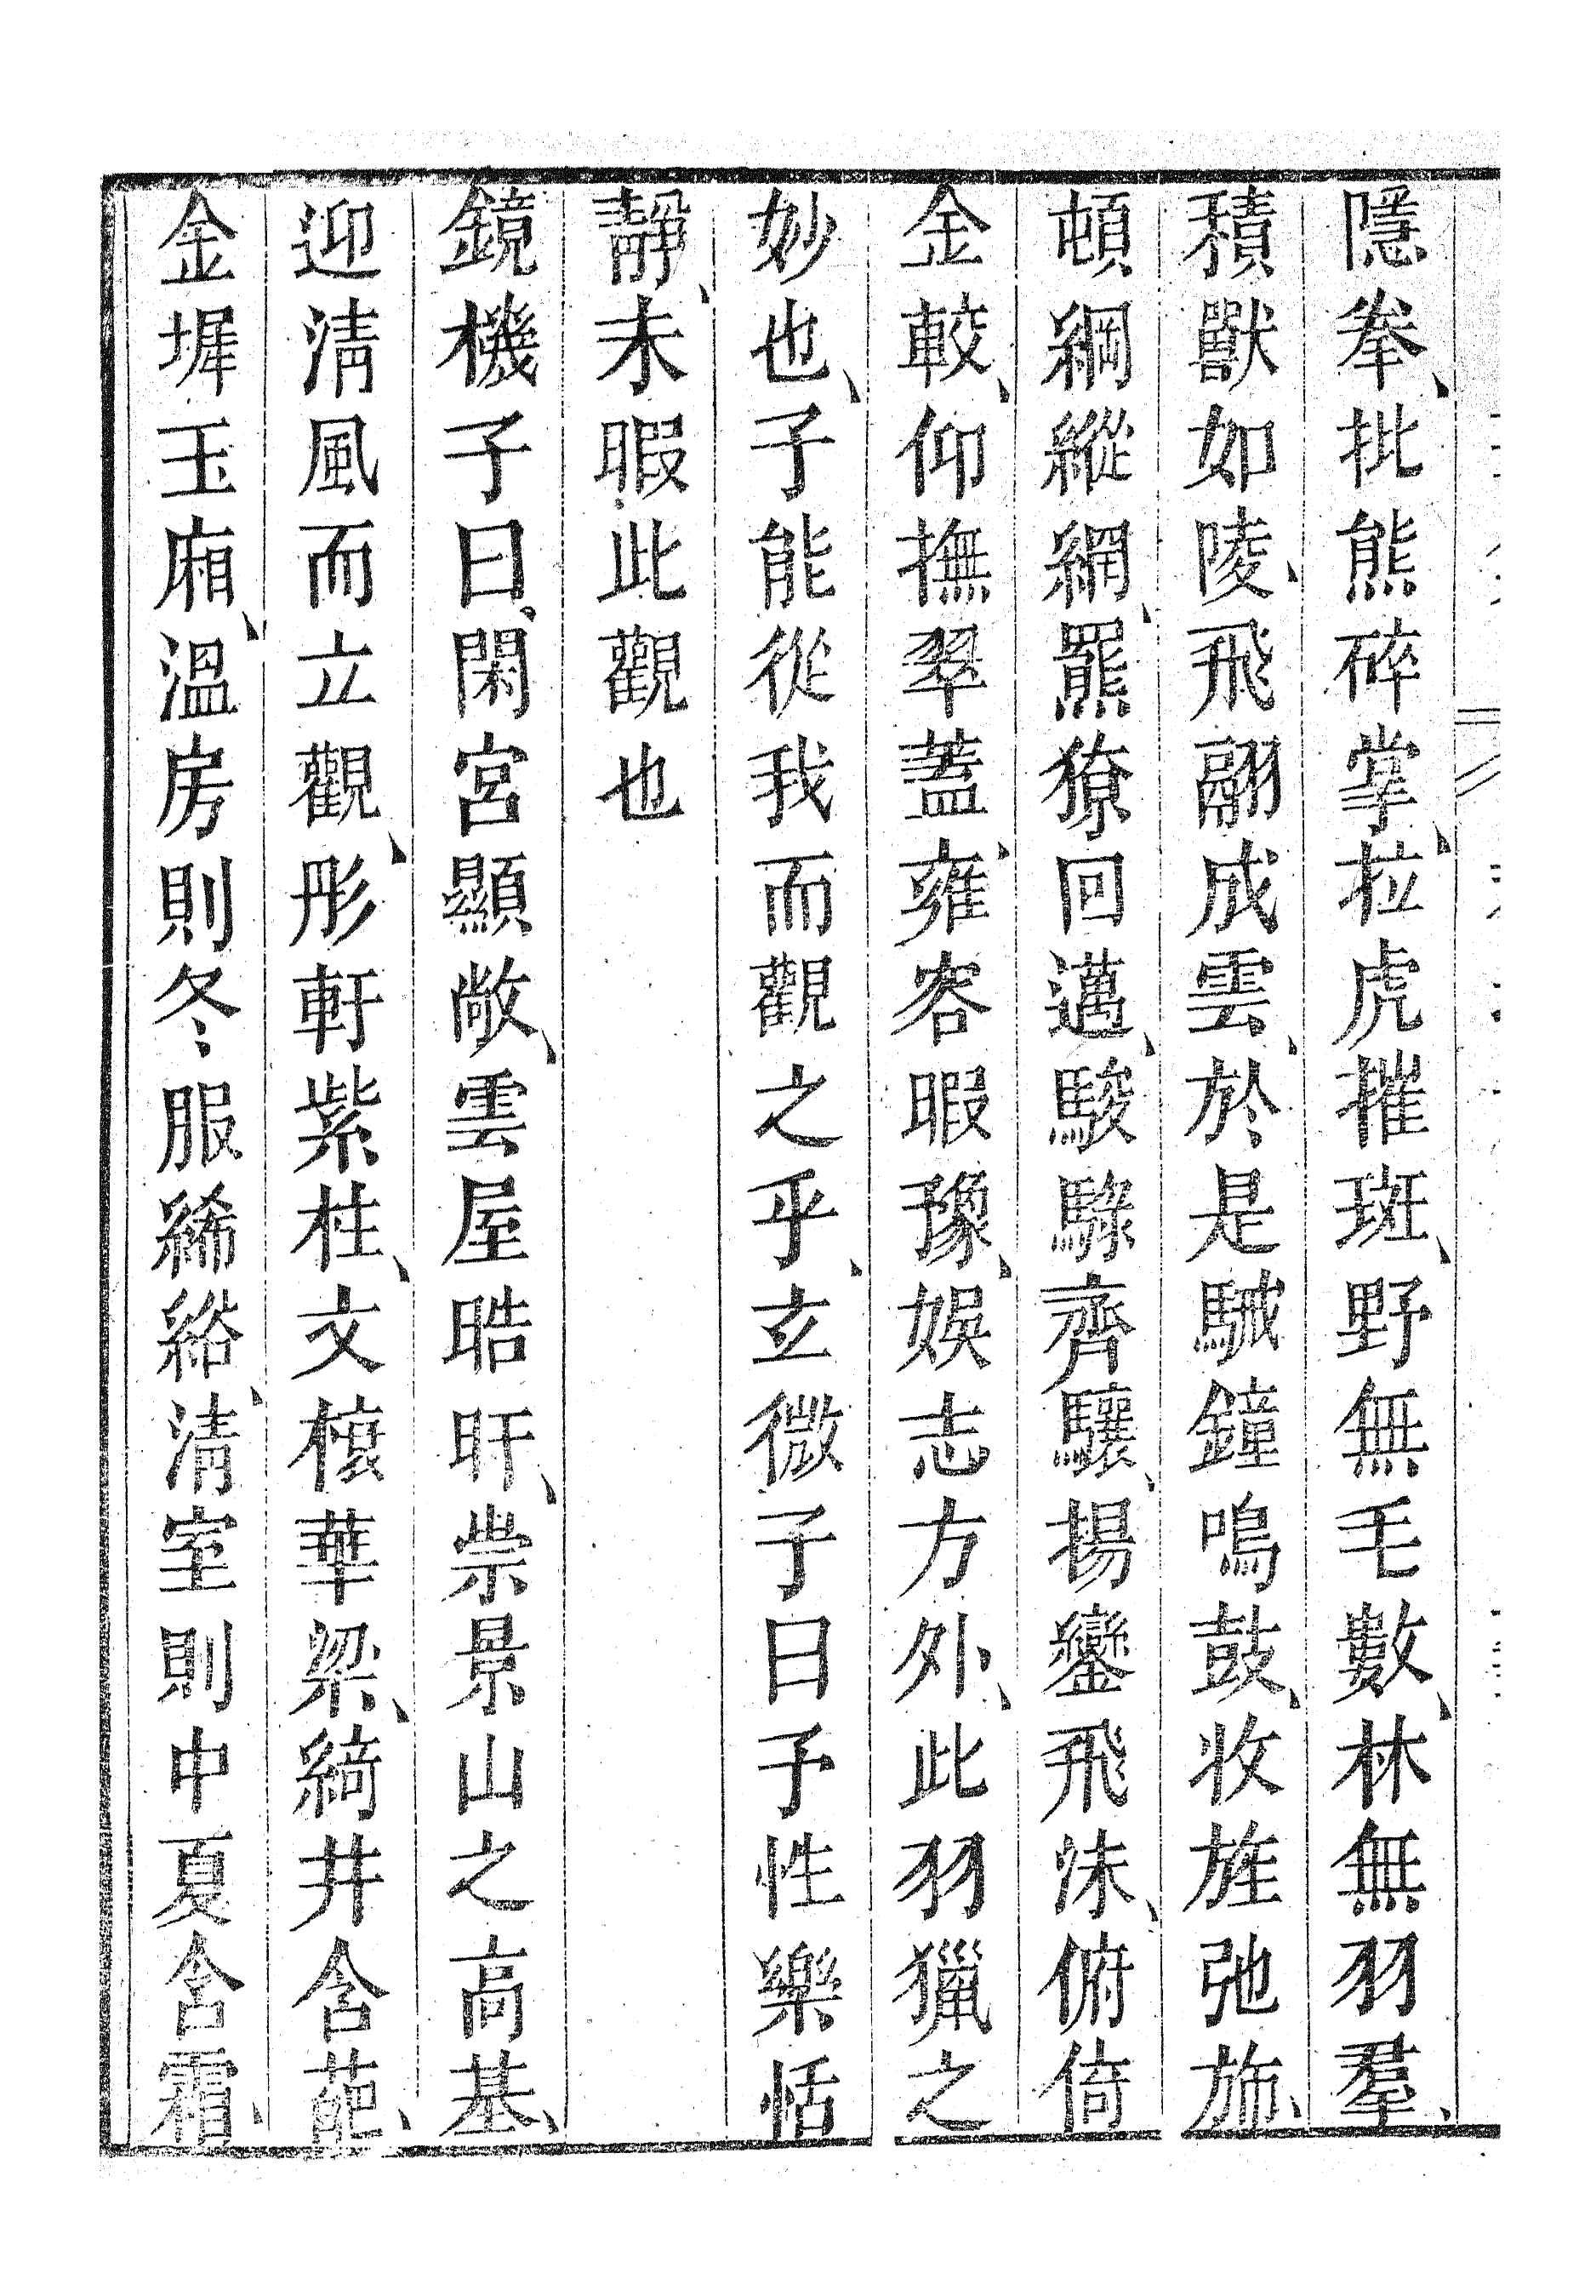 隱拳、批熊碎掌、拉虎摧斑、野無毛數、林無羽羣、
積獸如陵、飛翮成雲、於是駴鐘鳴鼓、收旌弛旆、
頓綱縱網、羆獠回邁、駿騄齊驤、揚鑾飛沫、俯倚
金較、仰撫翠蓋、雍容暇豫、娛志方外、此羽獵之
妙也、子能從我而觀之乎、玄微子曰予性樂恬
靜、未暇此觀也
鏡機子曰、閑宮顯敞、雲屋晧旰、崇景山之高基、
迎清風而立觀、彤軒紫柱、文榱華梁、綺井含葩、
金墀玉廂、溫房則冬服絺綌、清室則中夏含霜、